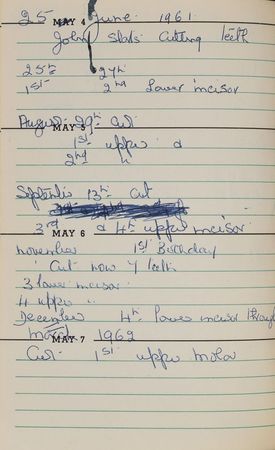 25 MAY 4 June 1961
John Starts Cutting teeth
25th 27th
1st 2nd Lower incisor
August 29th Cut
MAY 5
1st upper a
2nd "
September 13th Cut
3rd a 4th upper incisor
MAY 6
november 1st Birthday
Cut now 7 teeth
3 lower incisor
4 upper "
December 4th lower incisor through
March 1962
MAY 7
Cut 1st upper Molar